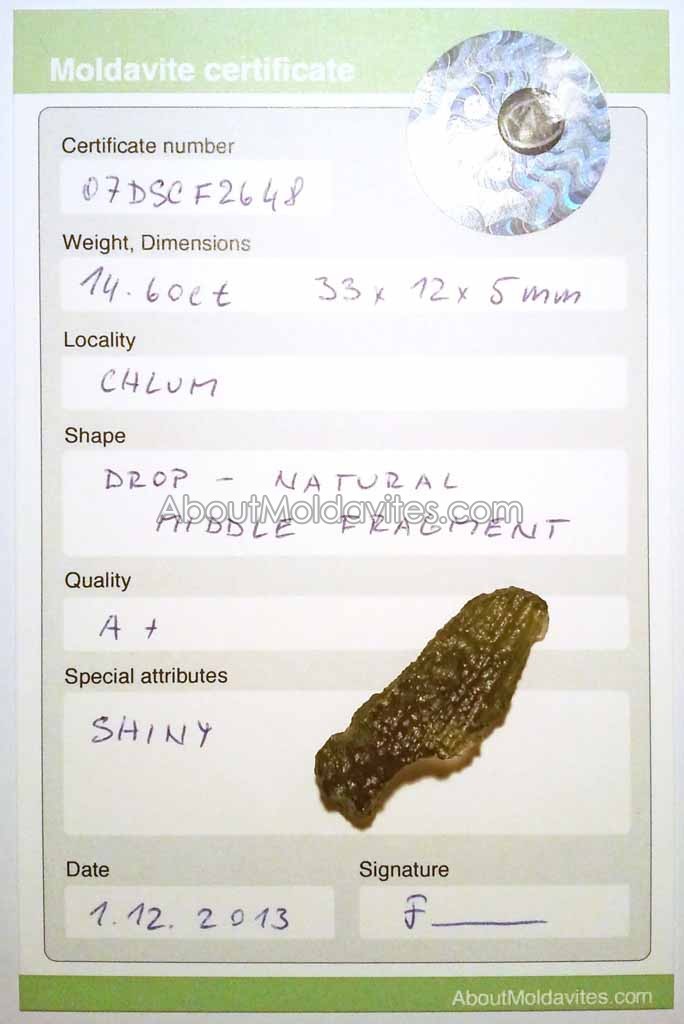 Moldavite certificate
Certificate number
07DSCF2648
Weight, Dimensions
14.60ct 33 x 12 x 5 mm
Locality
CHLUM
Shape
DROP - NATURAL
AboutMoldavites.com
MIDDLE FRAGMENT
Quality
A +
Special attributes
SHINY
Date Signature
1.12. 2013 F
AboutMoldavites.com